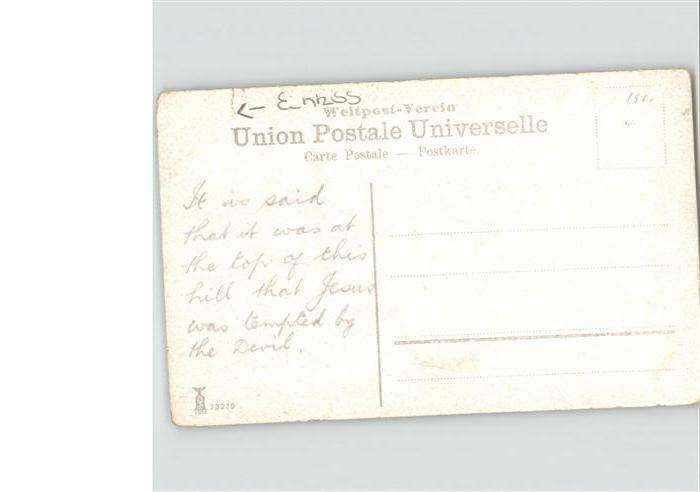 Weltpost-Verein
Union Postale Universelle
Carte Postale — Postkarte.
It is said
that it was at
the top of this
hill that Jesus
was tempted by
the Devil.
13279